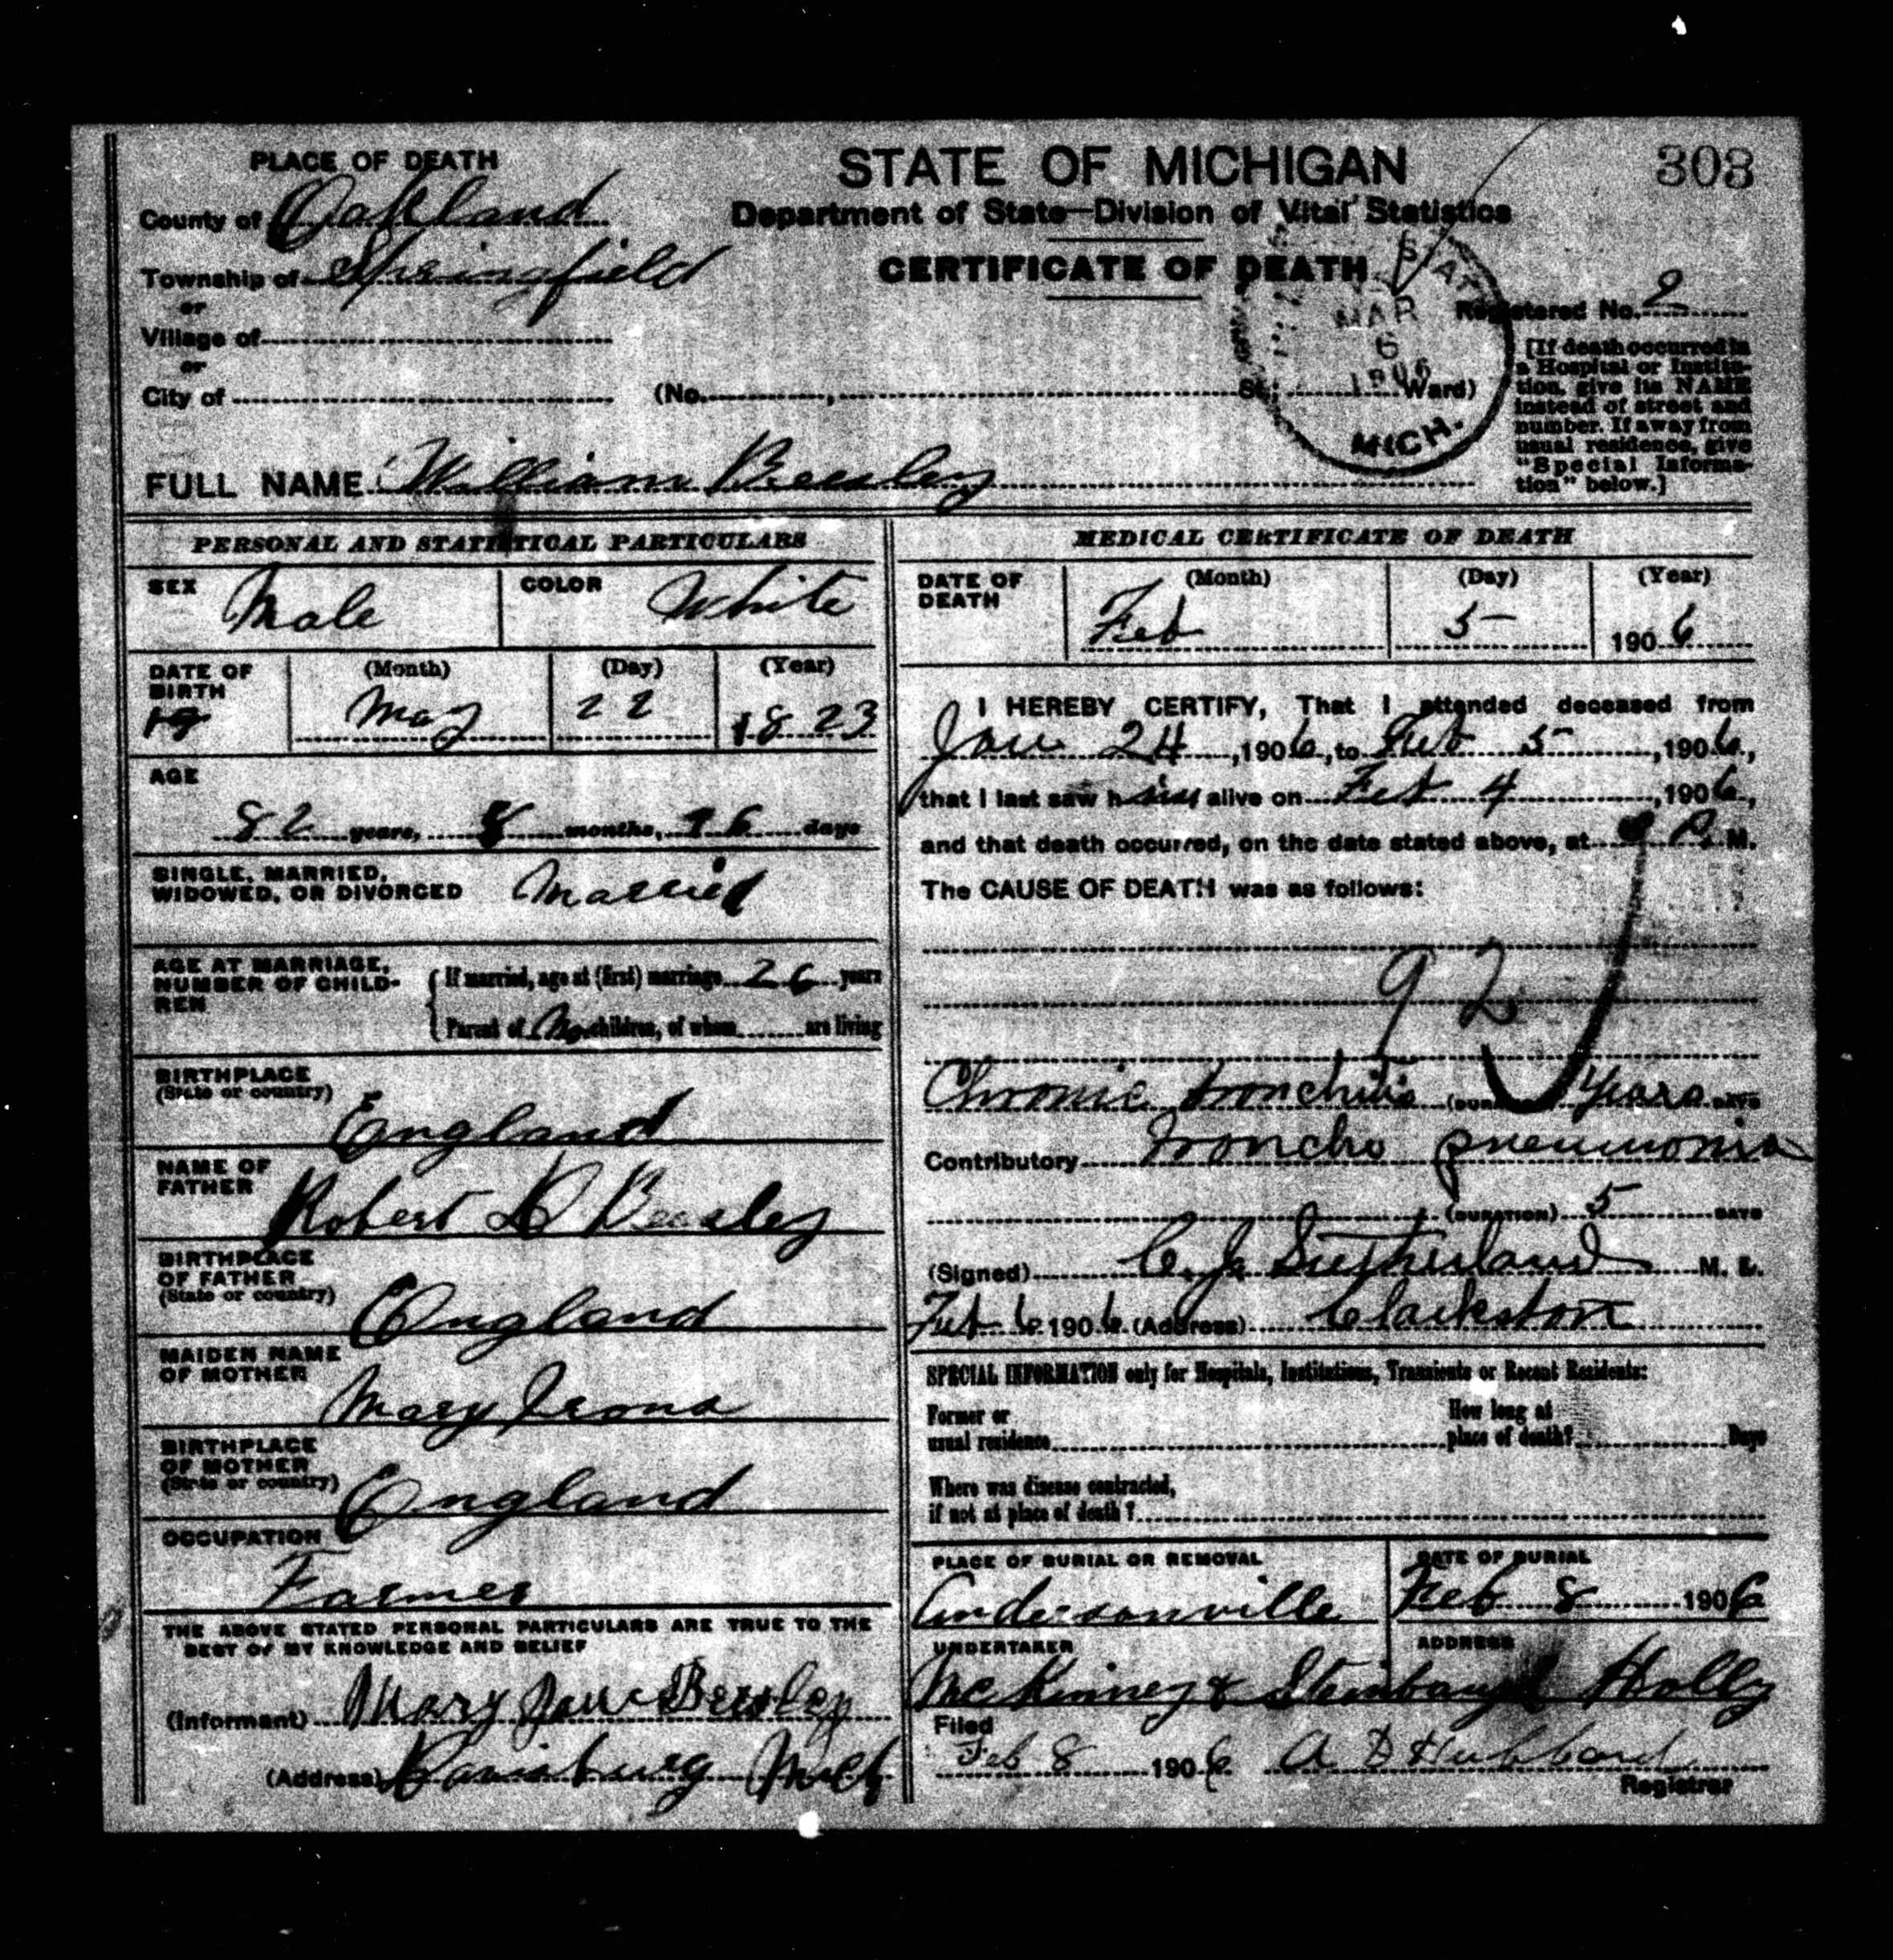 303
PLACE OF DEATH
STATE OF MICHIGAN
County of Oakland
Department of State—Division of Vital Statistics
Township of Springfield
CERTIFICATE OF DEATH
or
Village of
Registered No. 2
or
City of (No. , St.; Ward)
STAT
MAR
6
1906
MICH.
[If death occurred in
a Hospital or Institu-
tion, give its NAME
instead of street and
number. If away from
usual residence, give
"Special Informa-
tion" below.]
FULL NAME William Beesley
PERSONAL AND STATISTICAL PARTICULARS
SEX Male COLOR White
DATE OF BIRTH (Month) (Day) (Year)
May 22 1823
AGE
82 years, 8 months, 16 days
SINGLE, MARRIED,
WIDOWED, OR DIVORCED Married
AGE AT MARRIAGE,
NUMBER OF CHILD-
REN
If married, age at (first) marriage 26 years
Parent of No children, of whom are living
BIRTHPLACE
(State or country)
England
NAME OF
FATHER
Robert D Beesley
BIRTHPLACE
OF FATHER
(State or country)
England
MAIDEN NAME
OF MOTHER
Mary Irons
BIRTHPLACE
OF MOTHER
(State or country)
England
OCCUPATION
Farmer
THE ABOVE STATED PERSONAL PARTICULARS ARE TRUE TO THE
BEST OF MY KNOWLEDGE AND BELIEF
(Informant) Mary Jane Beesley
(Address) Davisburg Mich
MEDICAL CERTIFICATE OF DEATH
DATE OF
DEATH
(Month) (Day) (Year)
Feb 5 1906
I HEREBY CERTIFY, That I attended deceased from
Jan 24, 1906, to Feb 5, 1906,
that I last saw him alive on Feb 4, 1906,
and that death occurred, on the date stated above, at P. M.
The CAUSE OF DEATH was as follows:
92
Chronic bronchitis Years DAYS
Contributory Broncho pneumonia
(DURATION) 5 DAYS
(Signed) C. J. Sutherland M. D.
Feb 6 1906 (Address) Clarkston
SPECIAL INFORMATION only for Hospitals, Institutions, Transients or Recent Residents:
Former or
usual residence
How long at
place of death? Days
Where was disease contracted,
if not at place of death?
PLACE OF BURIAL OR REMOVAL DATE OF BURIAL
Andersonville Feb 8 1906
UNDERTAKER ADDRESS
McKinney & Steinbaugh Holly
Filed
Feb 8 1906 A D Hubbard
Registrar